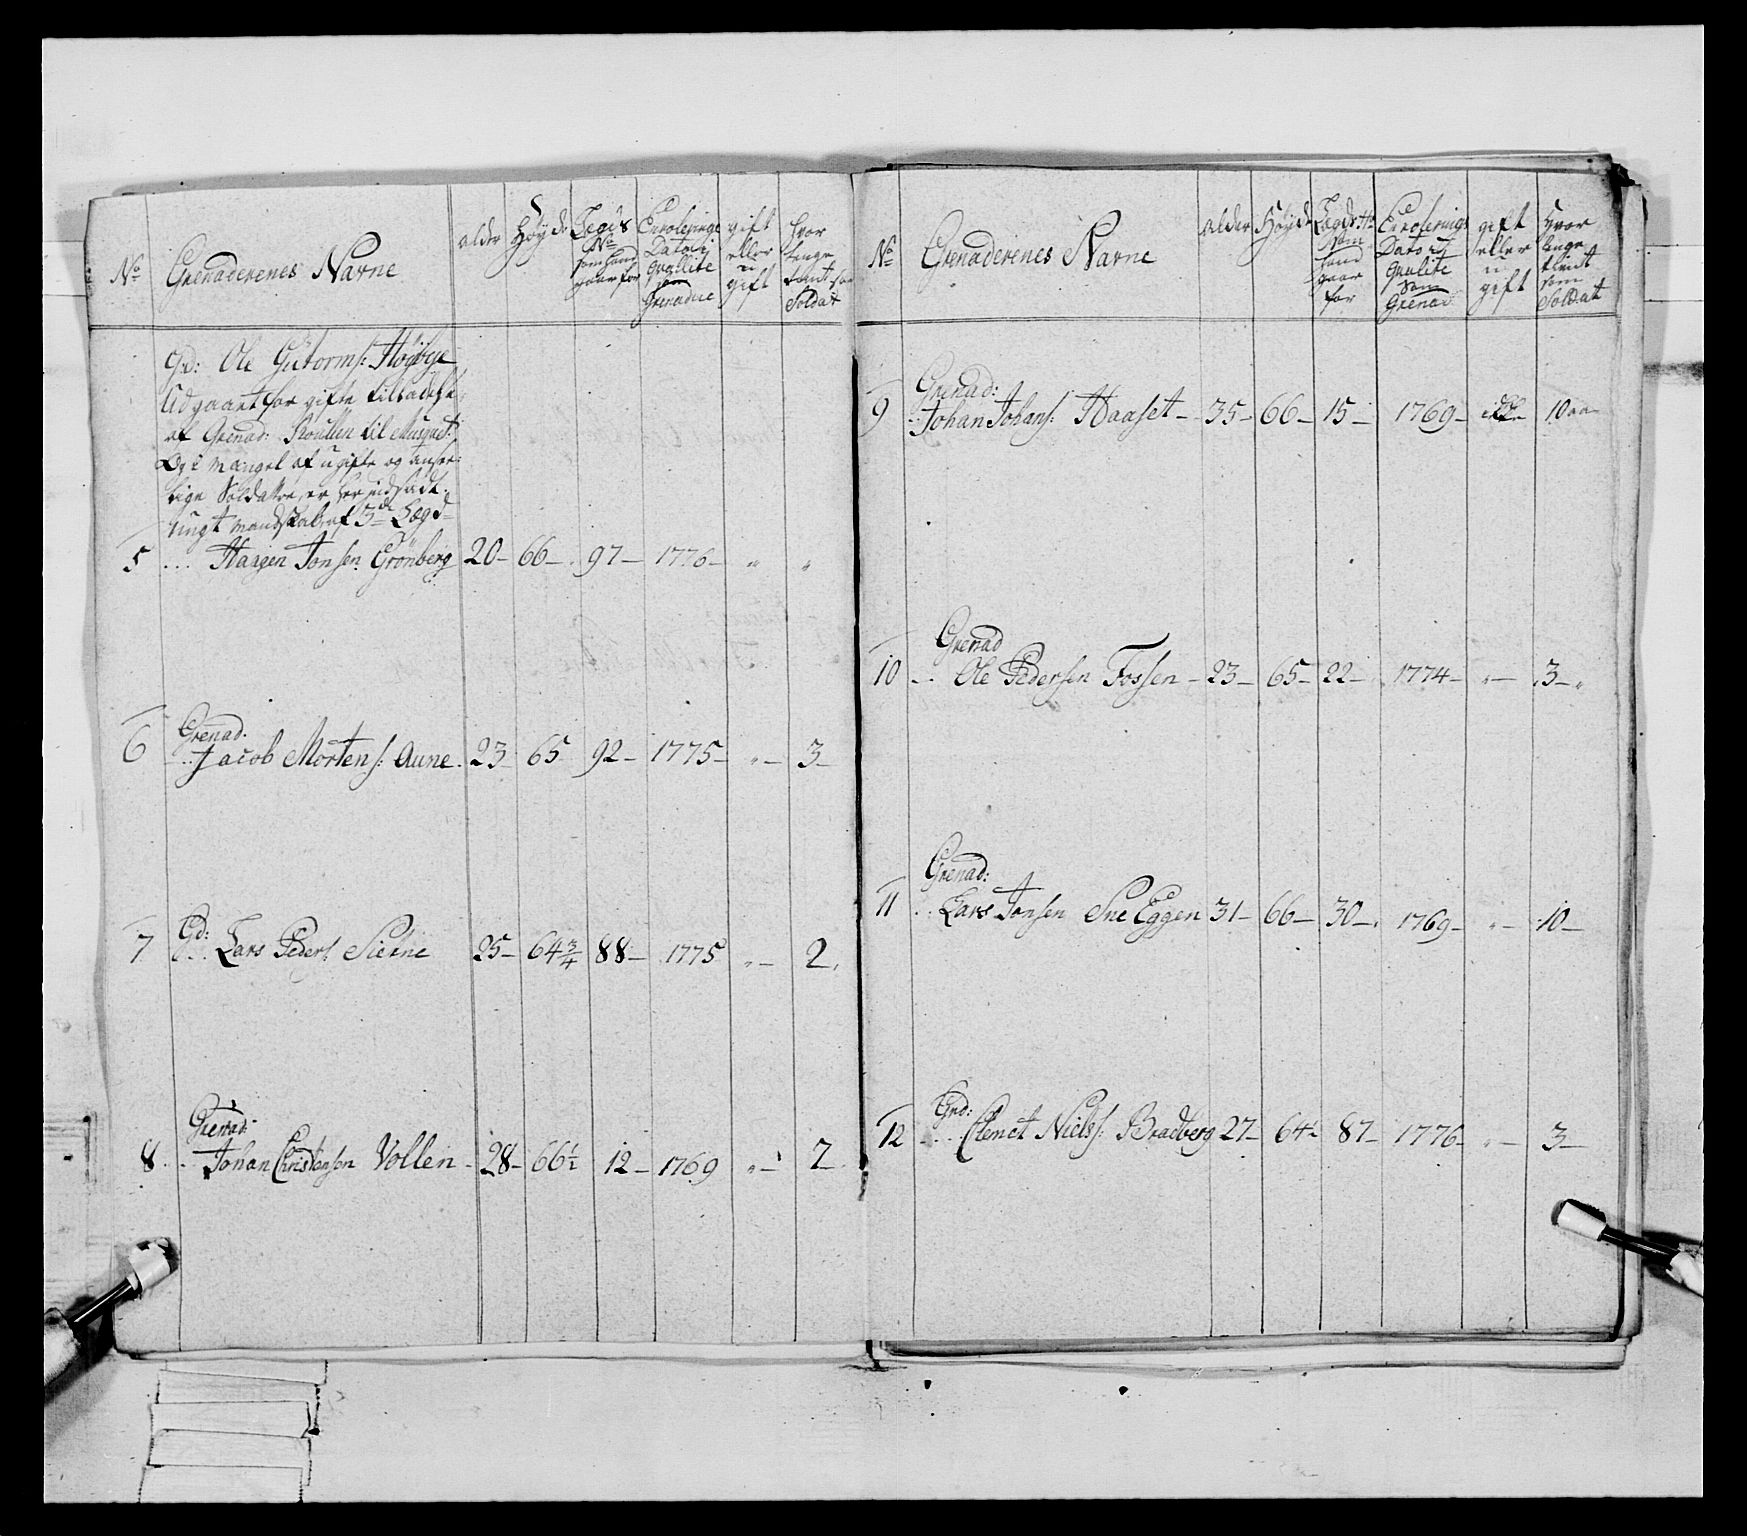 No Grenaderenes Navne alder Høyde Legds No som hand gaar for Enrolerings Dato i Qualite som Grenadeer gift eller u gift hvor lenge tient som Soldat
Grd: Ole Gutorms: Høybye
Udgaaet for gifte tilladelse
af Grenad: Roullen til Musquet:
Og i mangel af ugifte og anseelige
Soldatter, er her indsadt
ungt mandskab af 3de Legd
5 ... Haagen Jonsen Grönberg 20 - 66 - 97 - 1776 - " "
Grenad.
6 .. Jacob Mortens: Aune . 23 65 92 - 1775 - " - 3 -
Gd:
7 ... Lars Peders: Sierne 25 - 64 3/4 88 - 1775 " - 2.
Grenad:
8. .. Johan Christensen Vollen - 28 - 66 1/2 12 - 1769 " - 7 -
No Grenaderenes Navne alder Høyde Legds No som hand gaar for Enrolerings Dato i Qualite som Grenad: gift eller u gift hvor lenge tient som Soldat
Grenad:
9 .. Johan Johans: Haaset - 35 - 66 - 15 - 1769 - ikke 10 aar
Grenad
10 ... Ole Pedersen Fossen - 23 - 65 - 22 - 1774 - " - 3 - "
Grenad:
11 .. Lars Jonsen Sne Eggen 31 - 66 - 30 - 1769 - " - 10 -
Grd:
12 ... Clemet Niels: Bradberg 27 - 64 1/2 87 - 1776 - " - 3 -